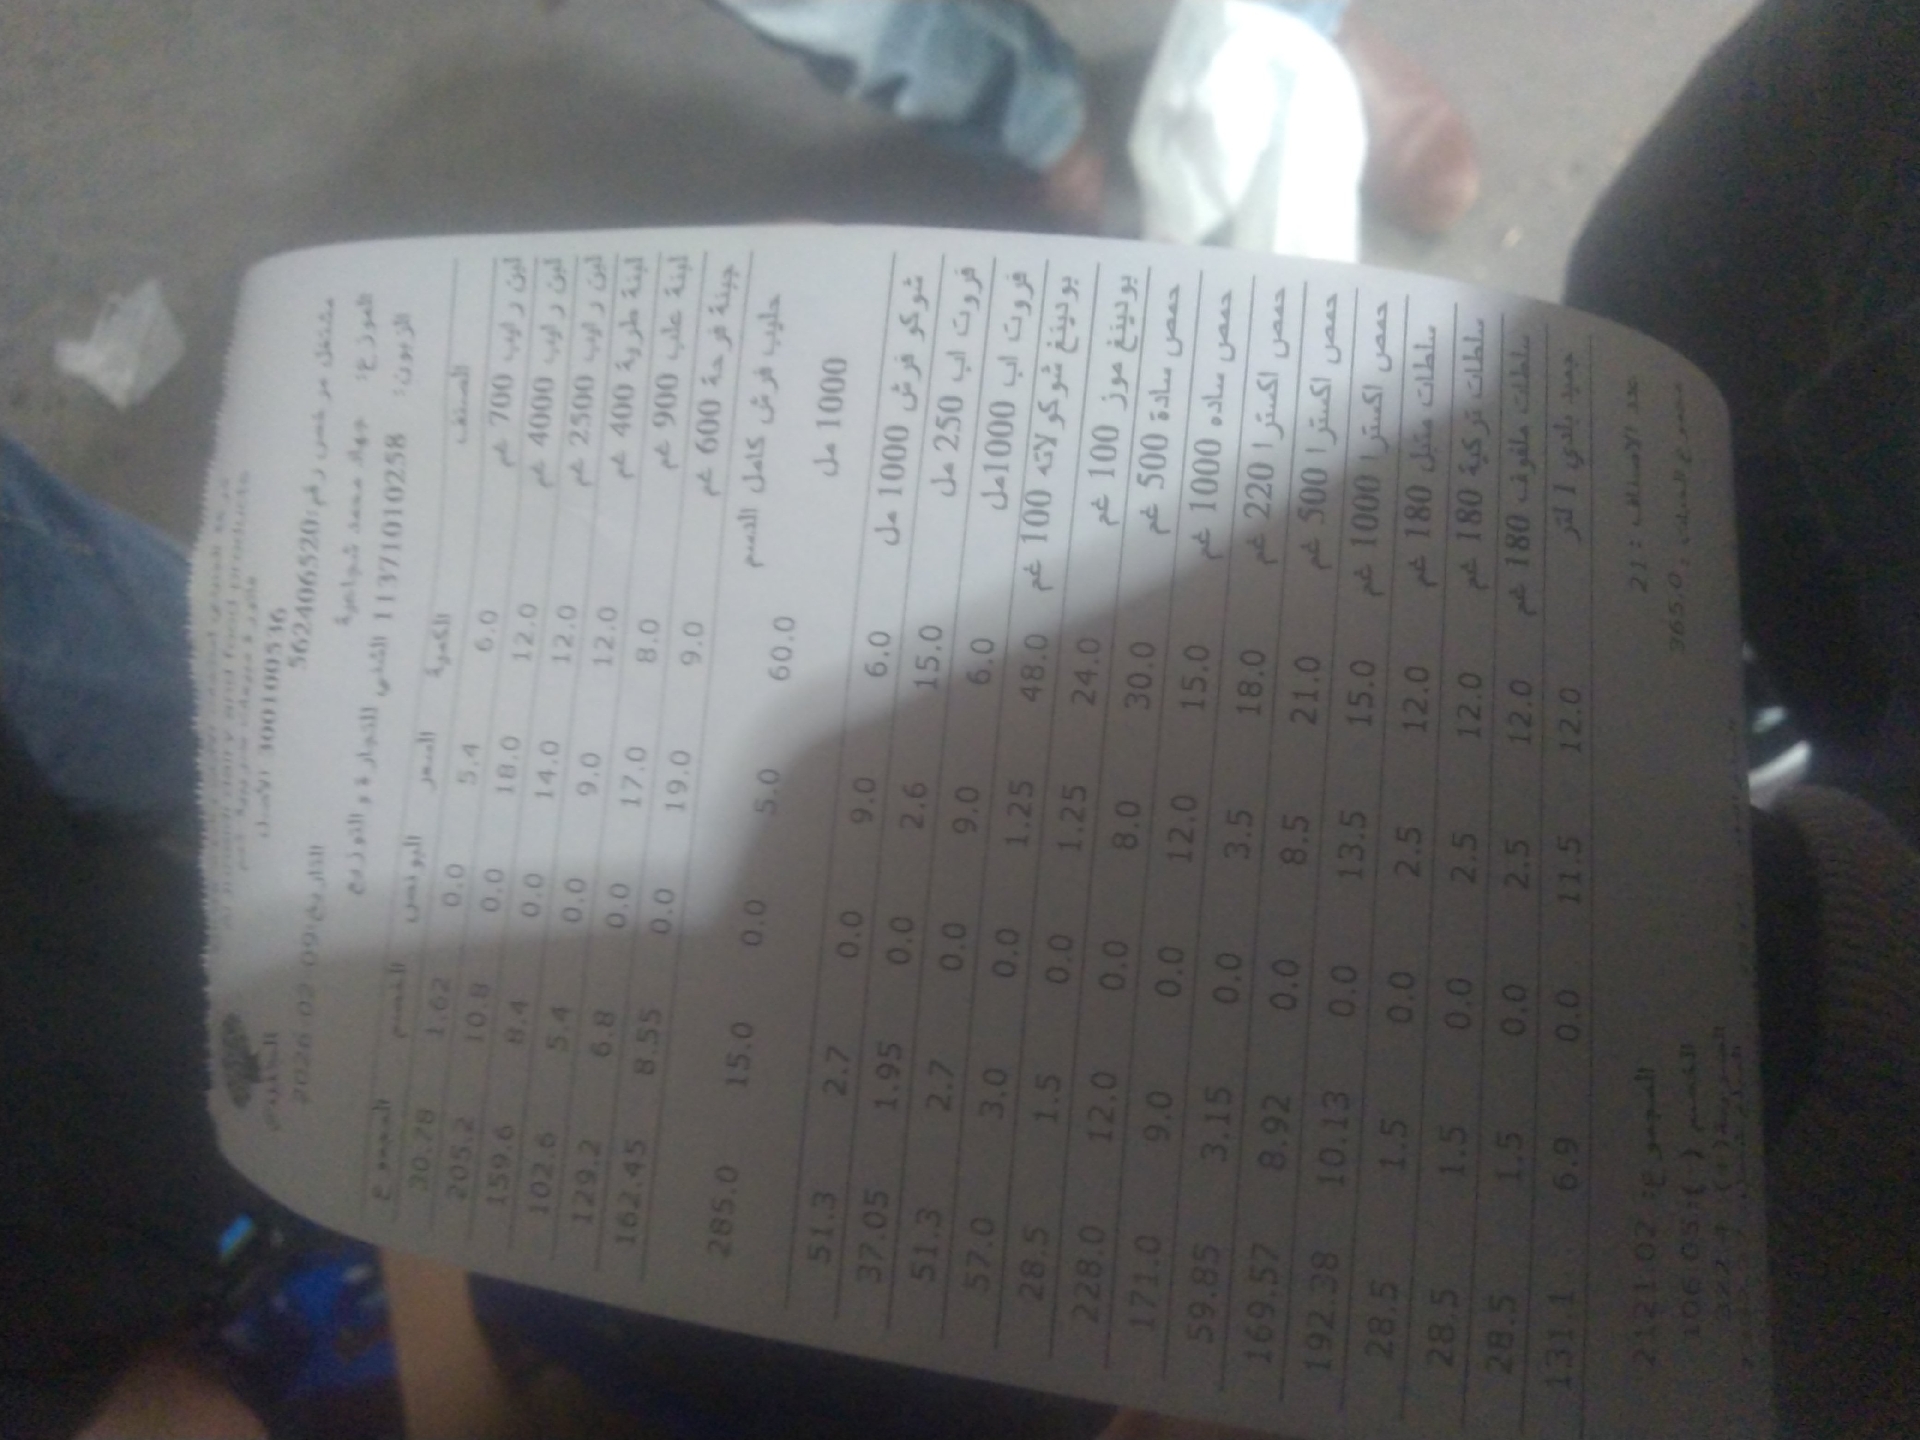 and food products
300100536 الأصل
مشتغل مرخص رقم:562406520 التاريخ:2026-02-09
الموزع: جهاد محمد شواهرة
الزبون: 1137101010258 الشني للتجارة والتوزيع
الصنف الكمية السعر البونص الخصم المجموع
لبن رايب 700 غم 6.0 5.4 0.0 1.62 30.78
لبن رايب 4000 غم 12.0 18.0 0.0 10.8 205.2
لبن رايب 2500 غم 12.0 14.0 0.0 8.4 159.6
لبنة طرية 400 غم 12.0 9.0 0.0 5.4 102.6
لبنة علب 900 غم 8.0 17.0 0.0 6.8 129.2
جبنة فرحة 600 غم 9.0 19.0 0.0 8.55 162.45
حليب فرش كامل الدسم 60.0 5.0 0.0 15.0 285.0
1000 مل
شوكو فرش 1000 مل 6.0 9.0 0.0 2.7 51.3
فروت اب 250 مل 15.0 2.6 0.0 1.95 37.05
فروت اب 1000مل 6.0 9.0 0.0 2.7 51.3
بودينغ شوكولاته 100 غم 48.0 1.25 0.0 3.0 57.0
بودينغ موز 100 غم 24.0 1.25 0.0 1.5 28.5
حمص ساده 500 غم 30.0 8.0 0.0 12.0 228.0
حمص ساده 1000 غم 15.0 12.0 0.0 9.0 171.0
حمص اكسترا 220 غم 18.0 3.5 0.0 3.15 59.85
حمص اكسترا 500 غم 21.0 8.5 0.0 8.92 169.57
حمص اكسترا 1000 غم 15.0 13.5 0.0 10.13 192.38
سلطات متبل 180 غم 12.0 2.5 0.0 1.5 28.5
سلطات تركية 180 غم 12.0 2.5 0.0 1.5 28.5
سلطات ملفوف 180 غم 12.0 2.5 0.0 1.5 28.5
جميد بلدي 1 لتر 12.0 11.5 0.0 6.9 131.1
عدد الاصناف: 21 المجموع: 2121.02
365.0 الخصم (-): 106.05